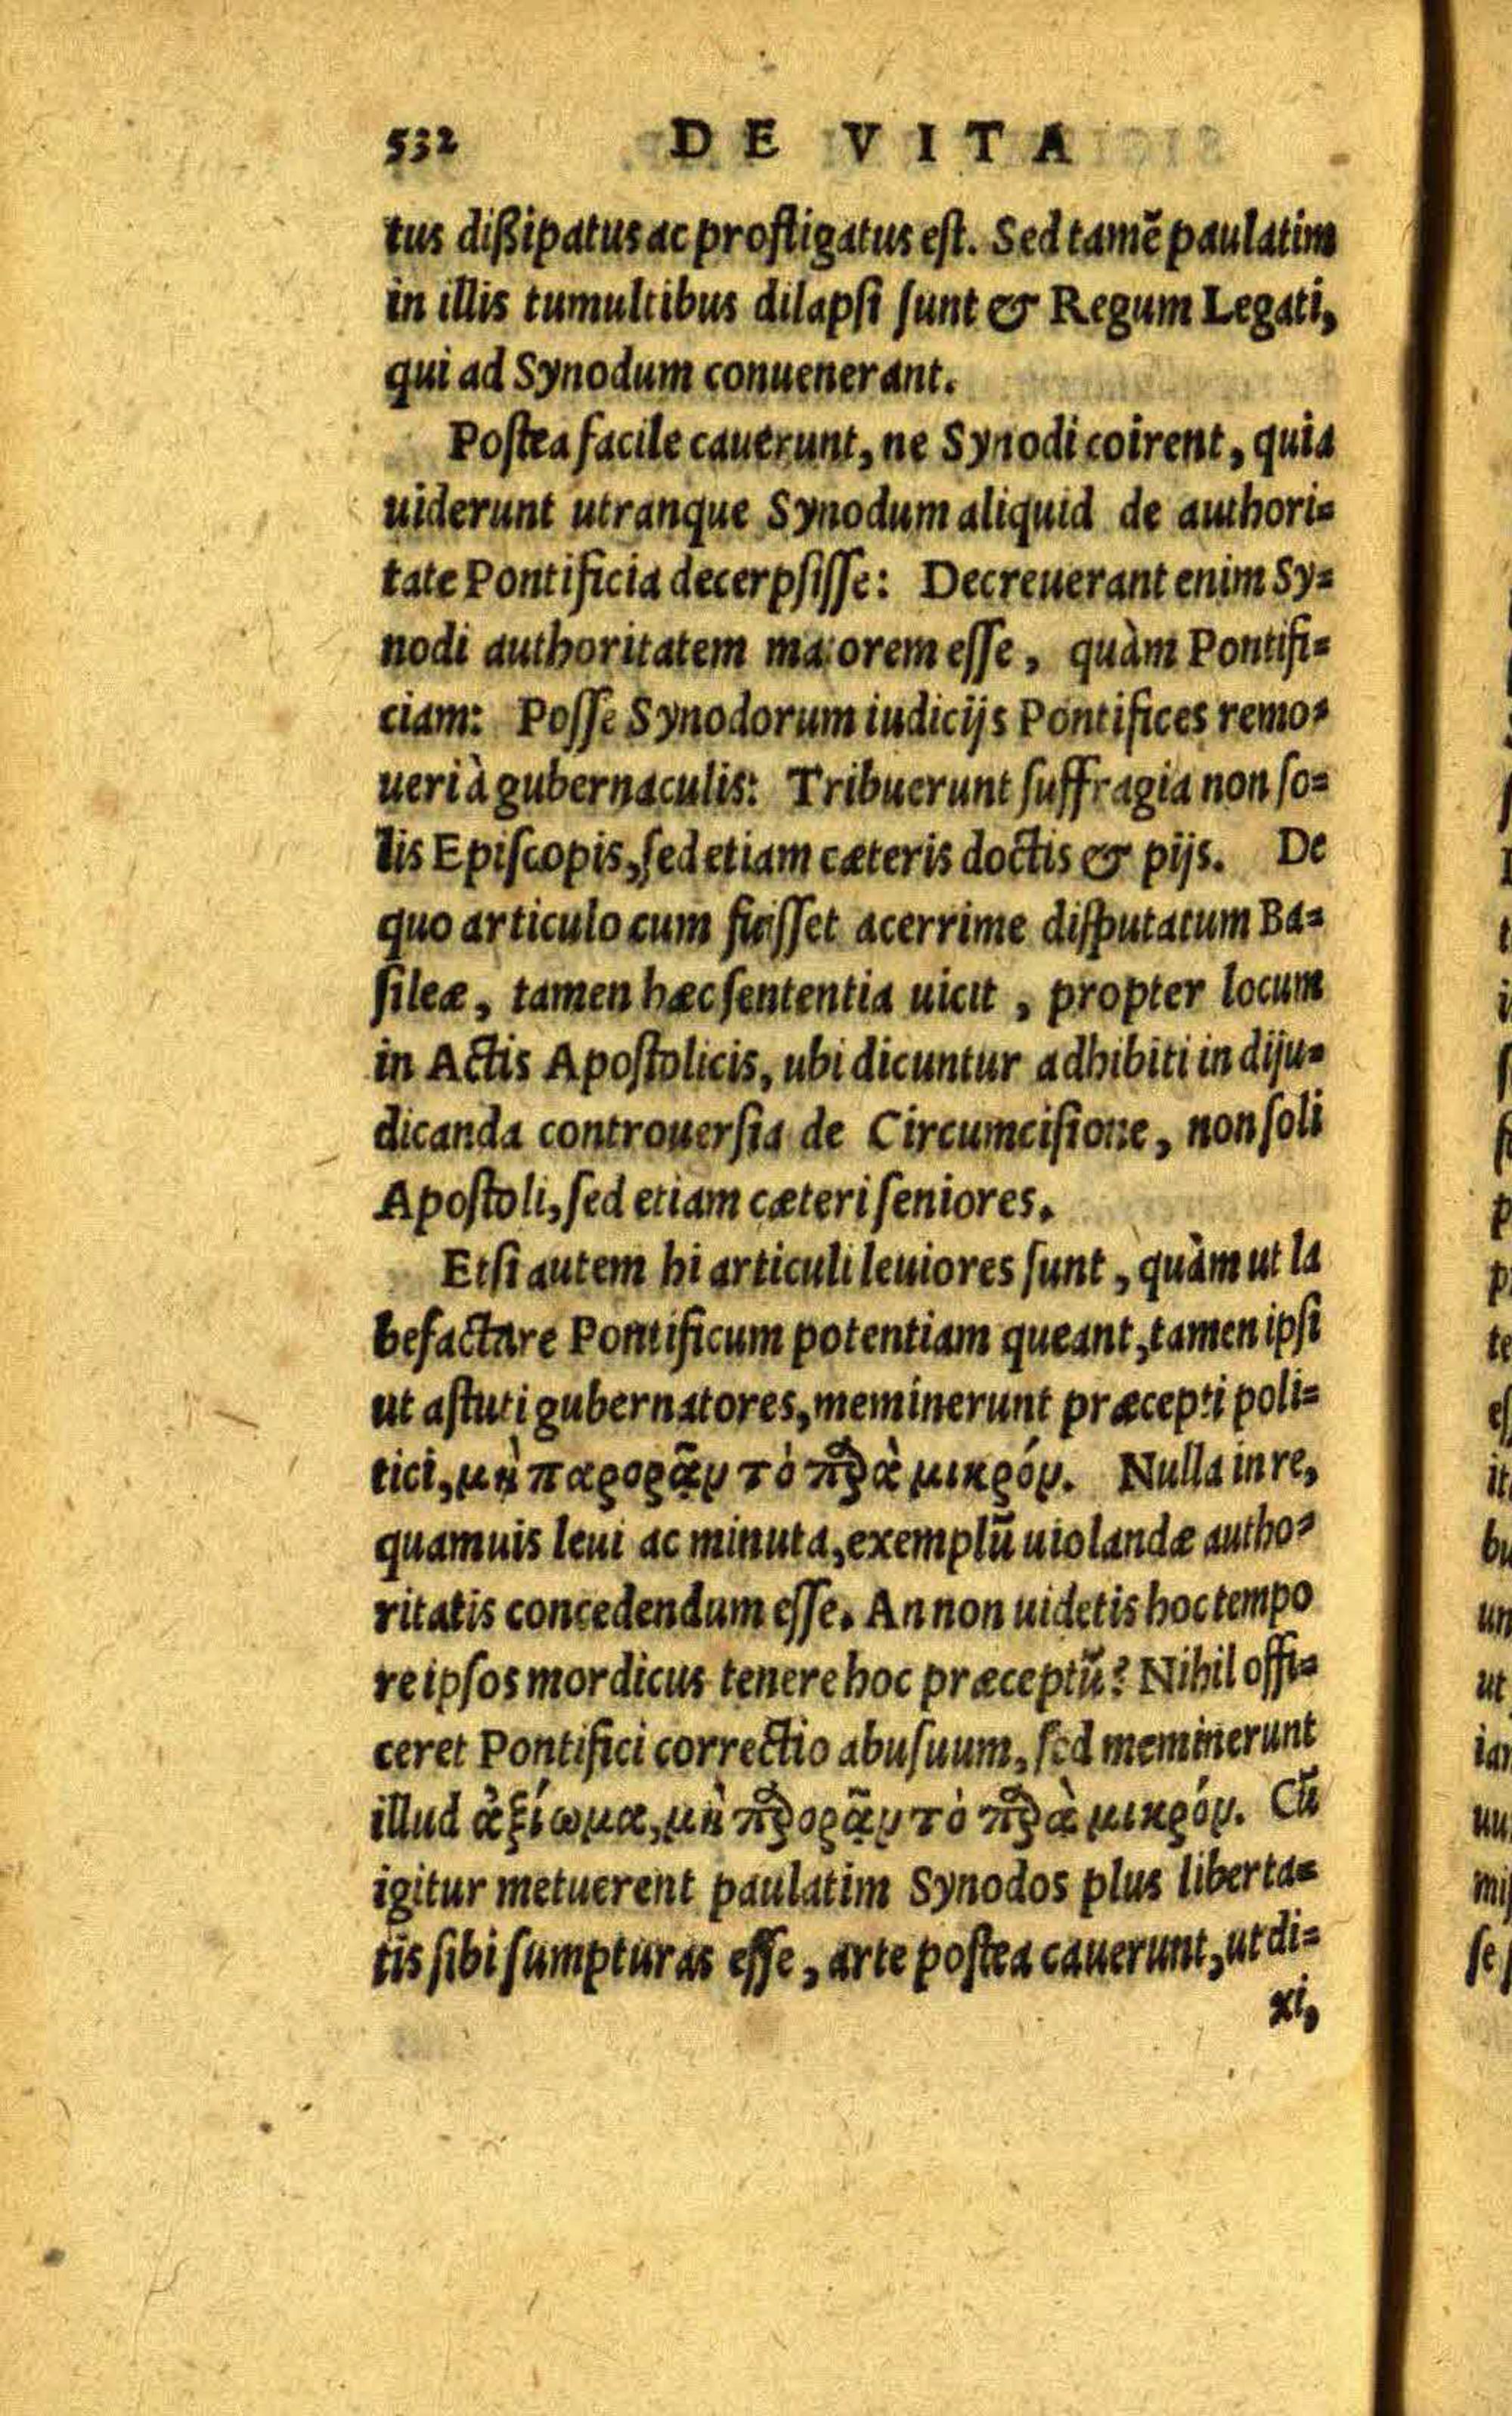 532 DE VITA
tus dißipatus ac profligatus est. Sed tamē paulatim
in illis tumultibus dilapsi sunt & Regum Legati,
qui ad Synodum conuenerant.
Postea facile cauerunt, ne Synodi coirent, quia
uiderunt utranque Synodum aliquid de authori=
tate Pontificia decerpsisse: Decreuerant enim Sy=
nodi authoritatem maiorem esse, quàm Pontifi=
ciam: Posse Synodorum iudicijs Pontifices remo=
ueri à gubernaculis: Tribuerunt suffragia non so=
lis Episcopis, sed etiam cæteris doctis & pijs. De
quo articulo cum fuisset acerrime disputatum Ba=
sileæ, tamen hæc sententia uicit, propter locum
in Actis Apostolicis, ubi dicuntur adhibiti in diju=
dicanda controuersia de Circumcisione, non soli
Apostoli, sed etiam cæteri seniores.
Etsi autem hi articuli leuiores sunt, quàm ut la
befactare Pontificum potentiam queant, tamen ipsi
ut astuti gubernatores, meminerunt præcepti poli=
tici, μὴ παρορᾶν τὸ παρὰ μικρόν. Nulla in re,
quamuis leui ac minuta, exemplū uiolandæ autho=
ritatis concedendum esse. An non uidetis hoc tempo
re ipsos mordicus tenere hoc præceptū? Nihil offi=
ceret Pontifici correctio abusuum, sed meminerunt
illud ἀξίωμα, μὴ παρορᾶν τὸ παρὰ μικρόν. Cū
igitur metuerent paulatim Synodos plus liberta=
tis sibi sumpturas esse, arte postea cauerunt, ut di=
xi,